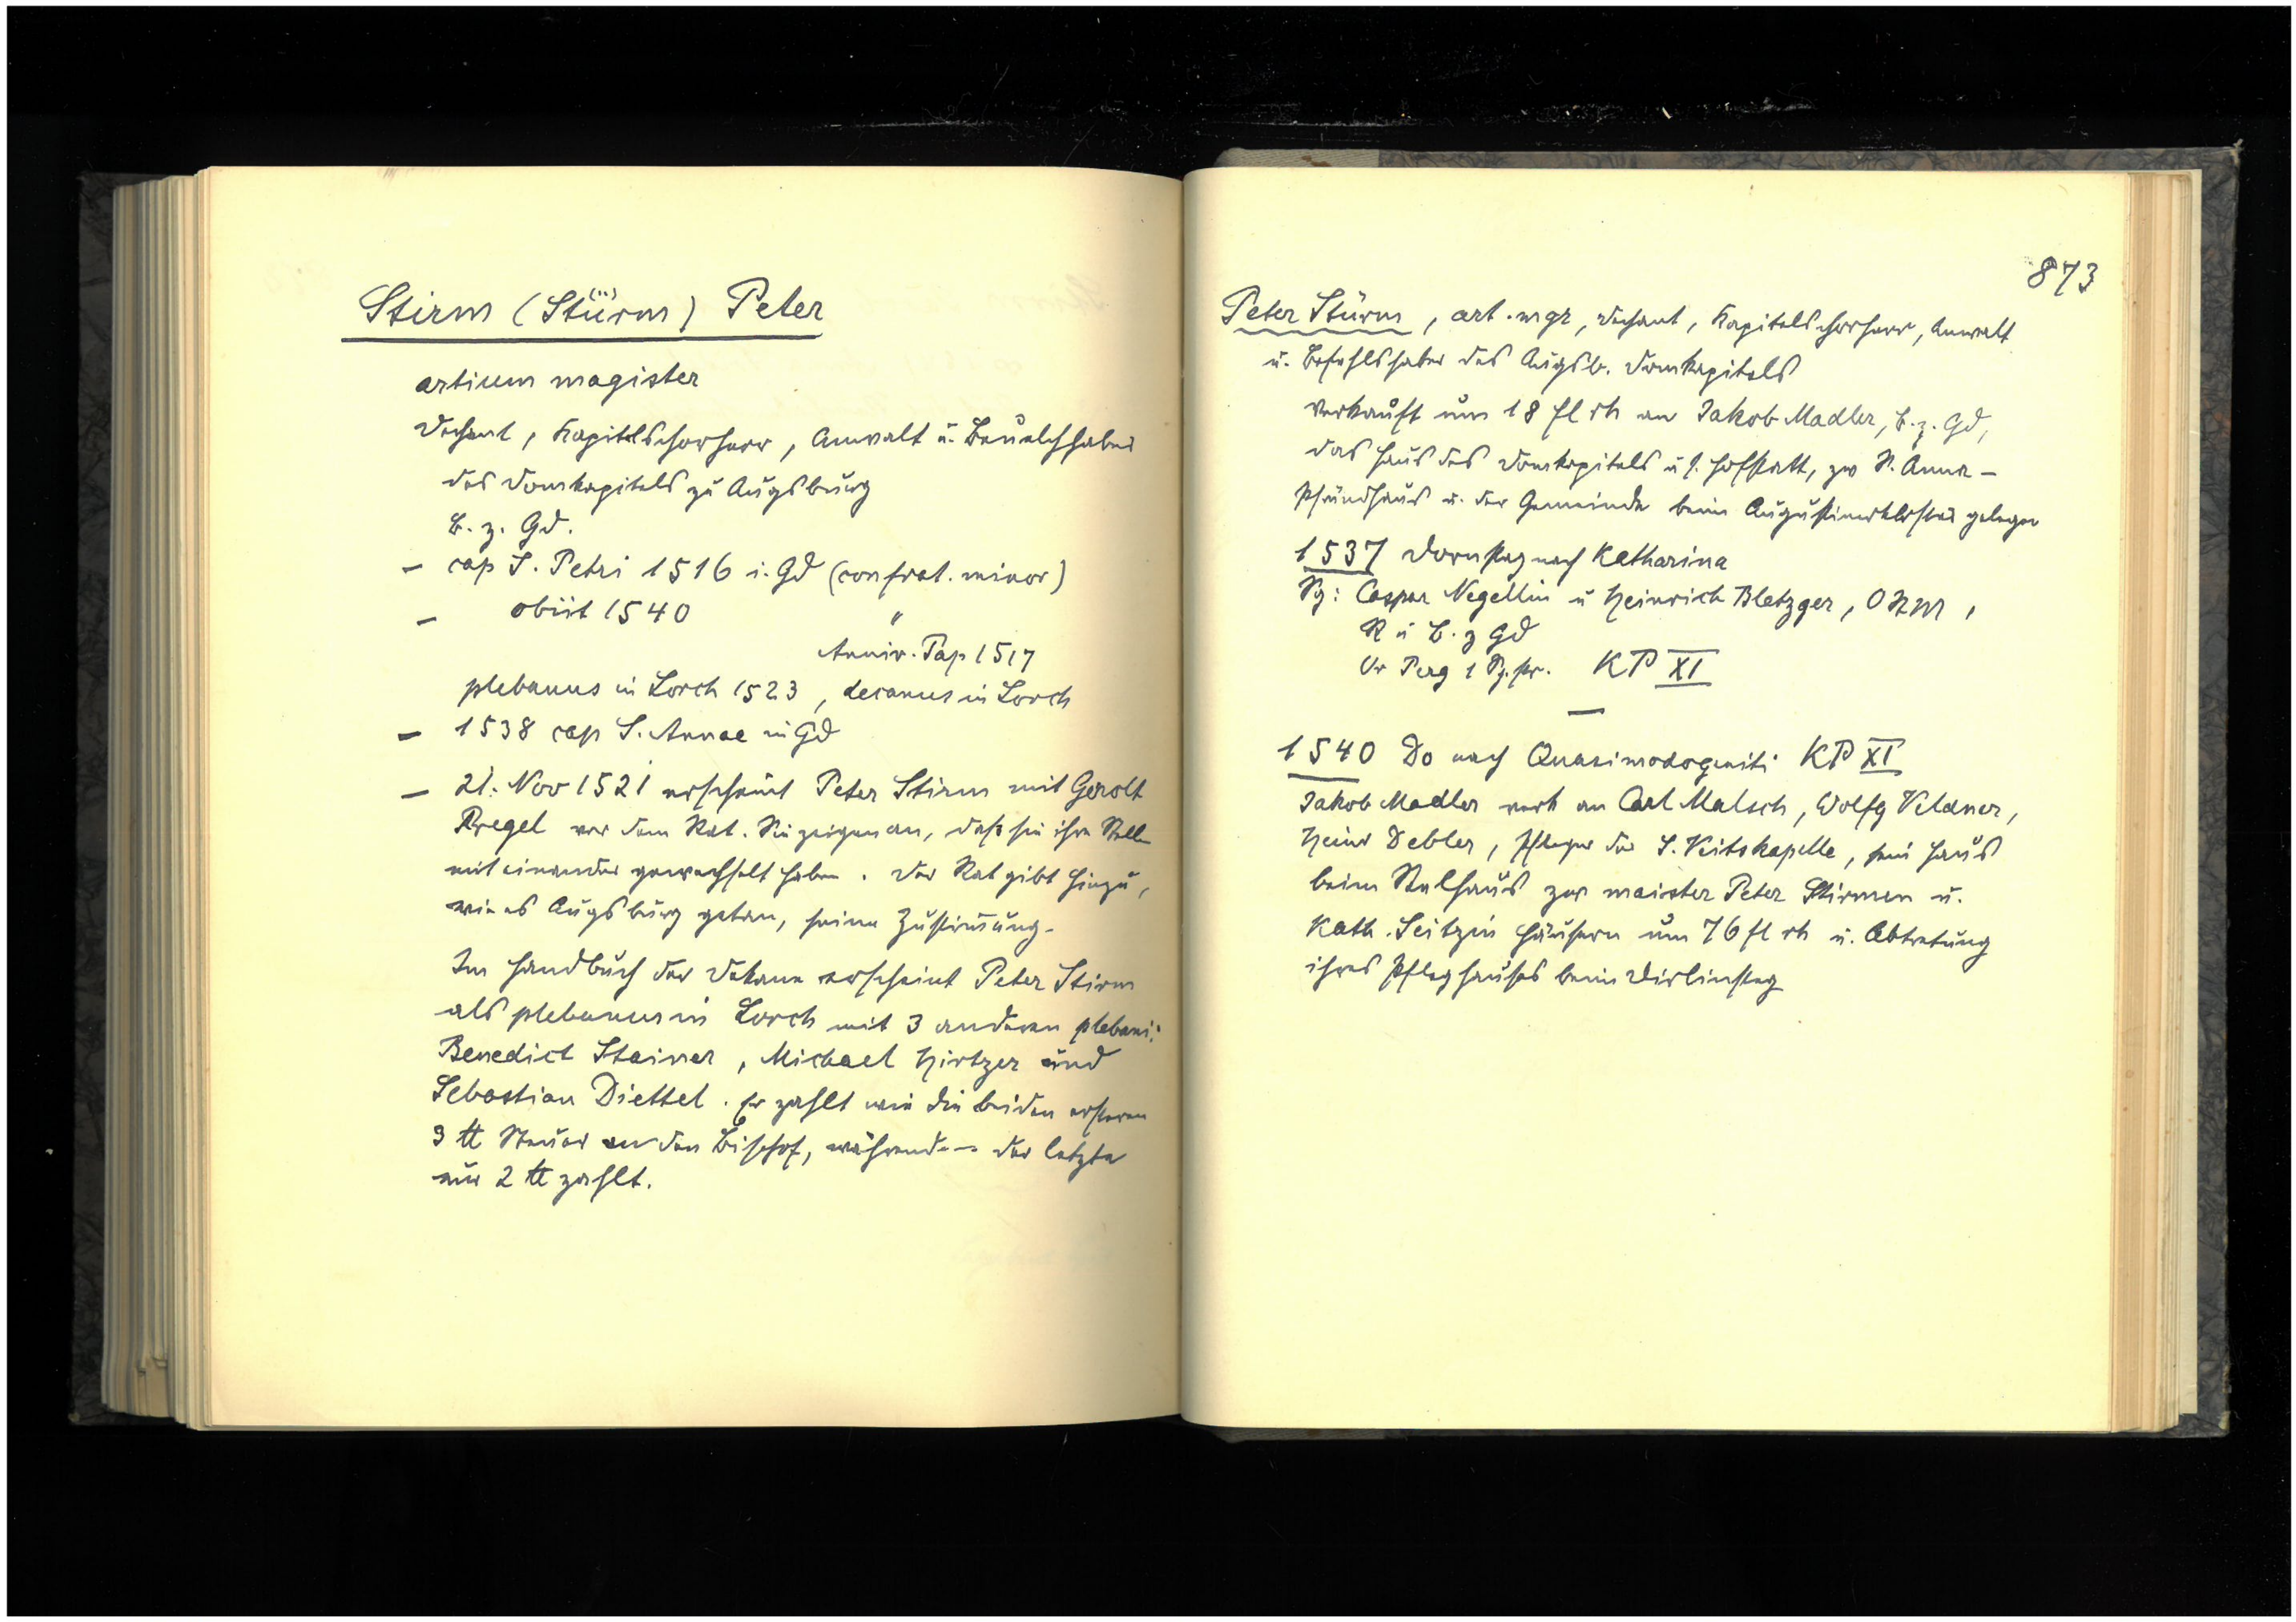 Stirm (Stürm) Peter
artium magister
Dechant, Kapitelschorherr, Anwalt u. Beuelchhaber
des Domkapitels zu Augsburg
B. z. Gd.
– cap S. Petri 1516 i. Gd (confrat. minor)
– obiit 1540 "
Anniv. Pap 1517
plebanus in Lorch 1523, decanus in Lorch
– 1538 cap S. Annae in Gd
– 21. Nov 1521 erscheint Peter Stirm mit Gerolt
Pregel vor dem Rat. Sie zeigen an, daß sie ihre Stelle
miteinander gewechselt haben. Der Rat gibt hiezu,
wie es Augsburg getan, seine Zustimmung.
Im Handbuch der Dekane erscheint Peter Stirm
als plebanus in Lorch mit 3 anderen plebani:
Benedict Stainer, Michael Hirtzer und
Sebastian Diettel. Er zahlt wie die beiden ersteren
3 ℔ Steuer an den Bischof, während der letzte
nur 2 ℔ zahlt.
873
Peter Stürm, art. mgr, Dechant, Kapitelschorherr, Anwalt
u. Befehlshaber des Augsb. Domkapitels
verkauft um 18 fl rh an Jakob Madler, B. z. Gd,
das Haus des Domkapitels u s. Hofstatt, zw S. Anna-
Pfründhaus u. der Gemeinde beim Augustinerkloster gelegen
1537 Dornstag nach Katharina
Sg: Caspar Negellin u Heinrich Bletzger, OStM,
R u B. z Gd
Or Perg 1 Sg. pr. KP XI
—
1540 Do nach Quasimodogeniti KP XI
Jakob Madler verk an Carl Malsch, Wolfg Veldner,
Heinr Debler, Pfleger der S. Veitskapelle, sein Haus
beim Stalhaus zw maister Peter Stirmen u.
Kath. Seitzin Häusern um 76 fl rh u. Abtretung
ihres Pfleghauses beim Dirlinsteg